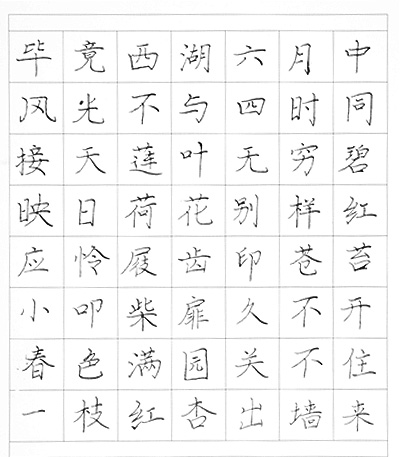 毕竟西湖六月中
风光不与四时同
接天莲叶无穷碧
映日荷花别样红
应怜屐齿印苍苔
小叩柴扉久不开
春色满园关不住
一枝红杏出墙来